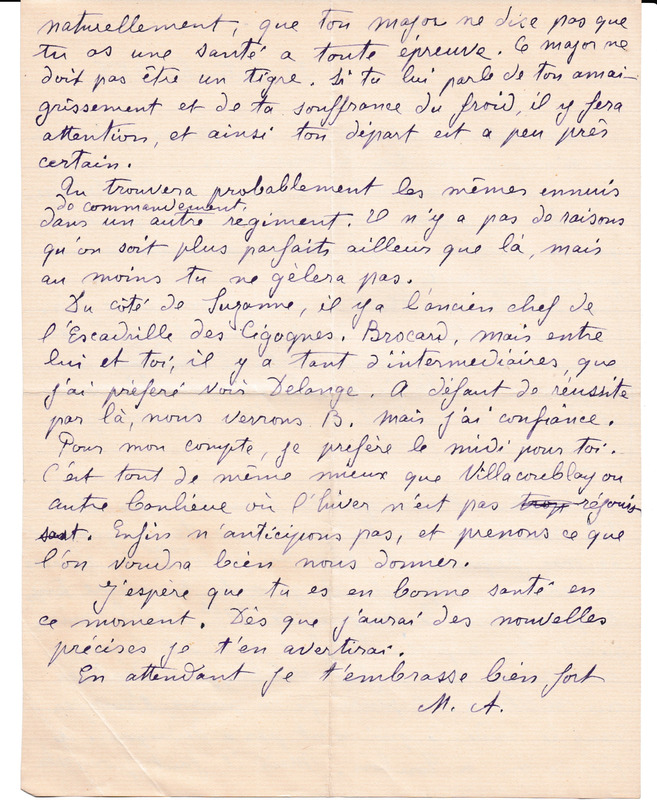 naturellement, que ton major ne dise pas que
tu as une santé a toute épreuve. Ce major ne
doit pas être un tigre. Si tu lui parle de ton amai-
grissement et de ta souffrance du froid, il y fera
attention, et ainsi ton départ est a peu près
certain.
Tu trouvera probablement les mêmes ennuis
de commandement
dans un autre regiment. Il n'y a pas de raisons
qu'on soit plus parfaits ailleurs que là, mais
au moins tu ne gèlera pas.
Du côté de Suzanne, il y a l'ancien chef de
l'Escadrille des Cigognes. Brocard, mais entre
lui et toi, il y a tant d'intermediaires, que
j'ai préféré voir Delange. A défaut de réussite
par là, nous verrons B. mais j'ai confiance.
Pour mon compte, je préfère le midi pour toi.
C'est tout de même mieux que Villacoublay ou
autre banlieue où l'hiver n'est pas trop réjouis
sant. Enfin n'anticipons pas, et prenons ce que
l'on voudra bien nous donner.
J'espère que tu es en bonne santé en
ce moment. Dès que j'aurai des nouvelles
précises je t'en avertirai.
En attendant je t'embrasse bien fort
M. A.